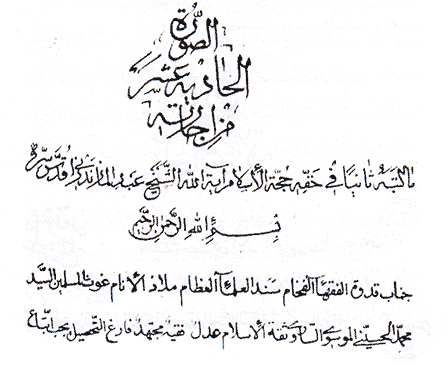 الصورة
الحادية عشر
من اجازته
ما كتبه ثانيا في حقه حجة الإسلام آية الله الشيخ عبدالله المازندراني قدس سره
بسم الله الرحمن الرحيم
جناب قدوة الفقهاء الفخام سند العلماء العظام ملاذ الانام غوث المسلمين السيد
محمد الحسيني الموسوي وثقة الاسلام عدل فقيه مجتهد فارغ التحصيل يجب اتباع